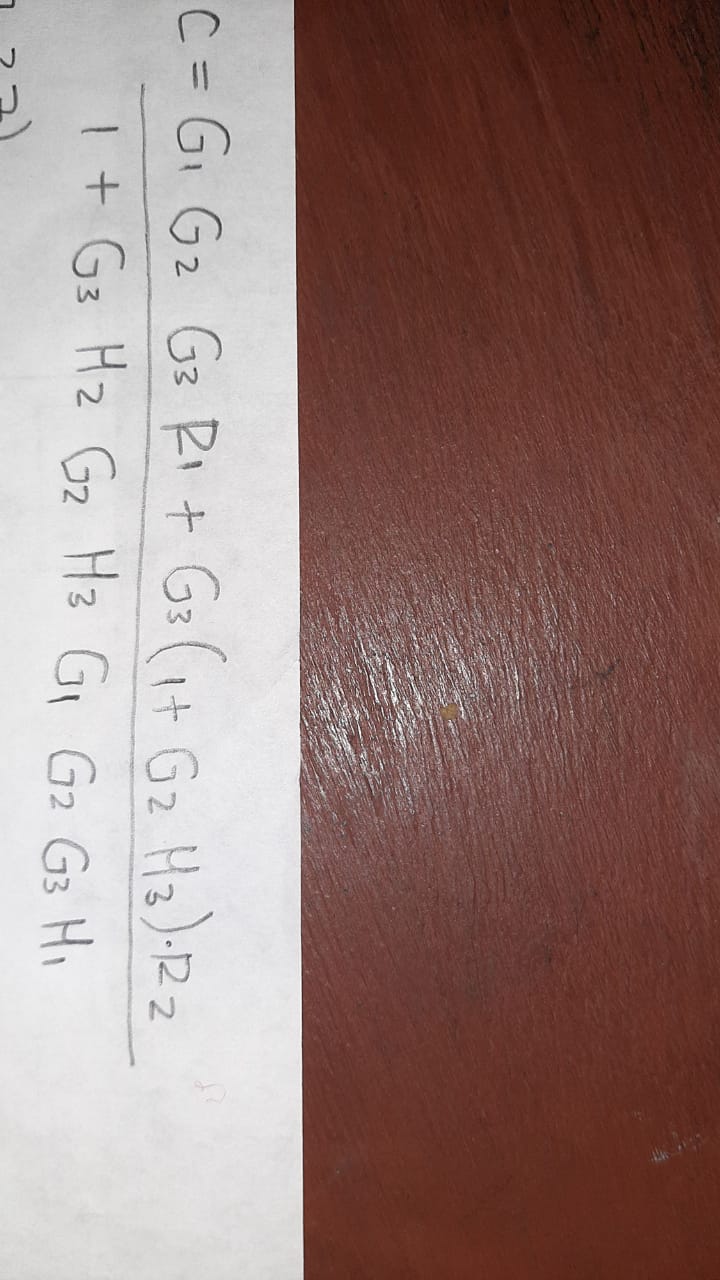 C = G1 G2 G3 R1 + G3(1+ G2 H3)·R2
1 + G3 H2 G2 H3 G1 G2 G3 H1